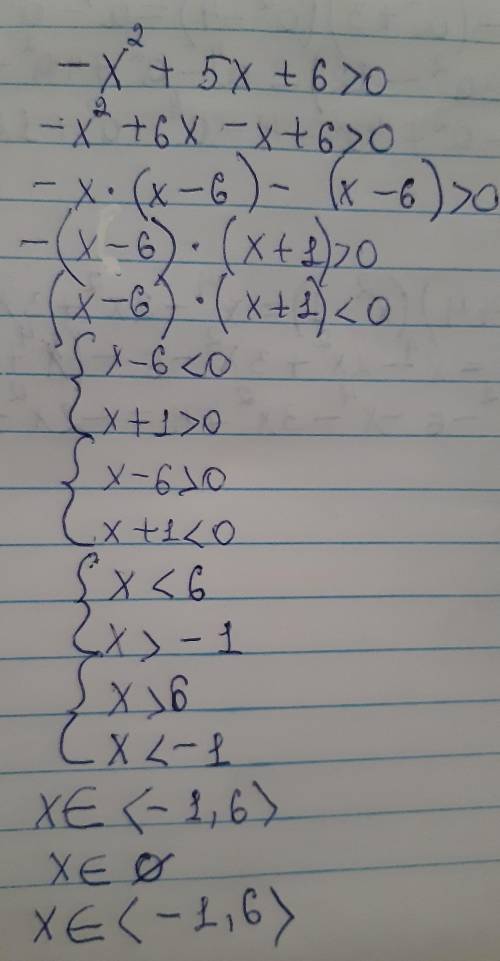 -x² + 5x + 6 > 0
-x² + 6x - x + 6 > 0
-x · (x - 6) - (x - 6) > 0
-(x - 6) · (x + 1) > 0
(x - 6) · (x + 1) < 0
{ x - 6 < 0
x + 1 > 0
{ x - 6 > 0
x + 1 < 0
{ x < 6
x > -1
{ x > 6
x < -1
x ∈ ⟨-1, 6⟩
x ∈ ∅
x ∈ ⟨-1, 6⟩